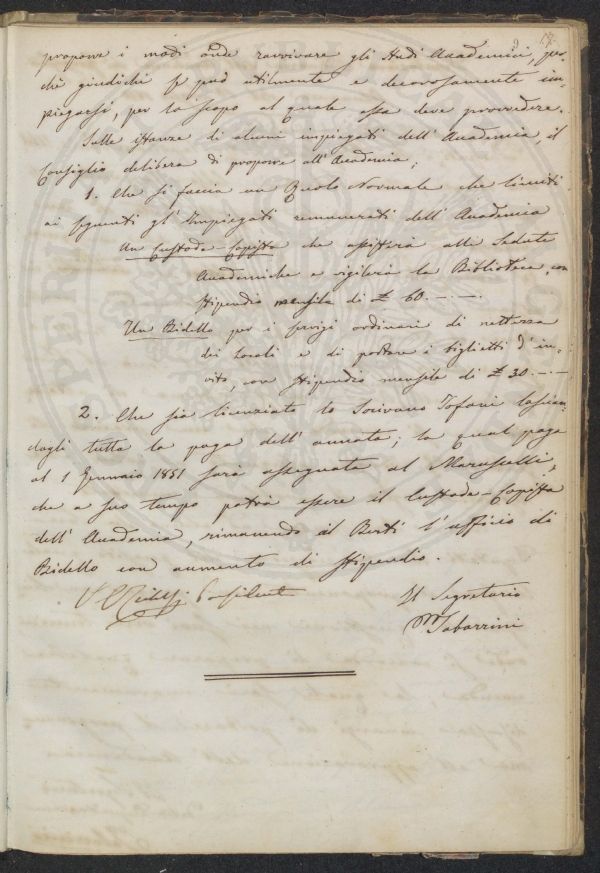 17
proporre i modi onde ravvivare gli studi Accademici, per-
chè giudichi se può utilmente e decorosamente im-
piegarsi, per lo scopo al quale essa deve provvedere.
Sulle istanze di alcuni impiegati dell' Accademia, il
Consiglio delibera di proporre all' Accademia;
1. Che si faccia un Ruolo Normale che limiti
ai seguenti gl' Impiegati remunerati dell' Accademia
Un Custode-Copista che assisterà alle Sedute
Accademiche e vigilerà la Biblioteca, con
stipendio mensile di £ 60.—.—.
Un Bidello per i servizi ordinari di nettezza
dei locali e di portare i biglietti d' in-
vito, con stipendio mensile di £ 30.—.—
2. Che sia licenziato lo Scrivano Tofani lascian-
dogli tutta la paga dell' annata; la qual paga
al 1 Gennaio 1851 sarà assegnata al Maruscelli,
che a suo tempo potrà essere il Custode-Copista
dell' Accademia, rimanendo al Berti l' ufficio di
Bidello con aumento di stipendio.
Presidente
Il Segretario
M Tabarrini